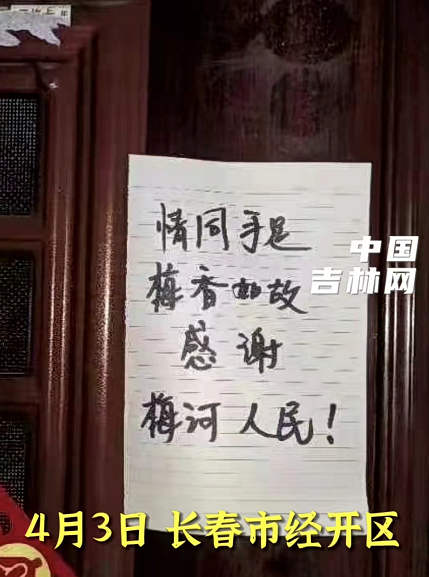 情同手足
梅香如故
感谢
梅河人民！
中国
吉林网
4月3日 长春市经开区